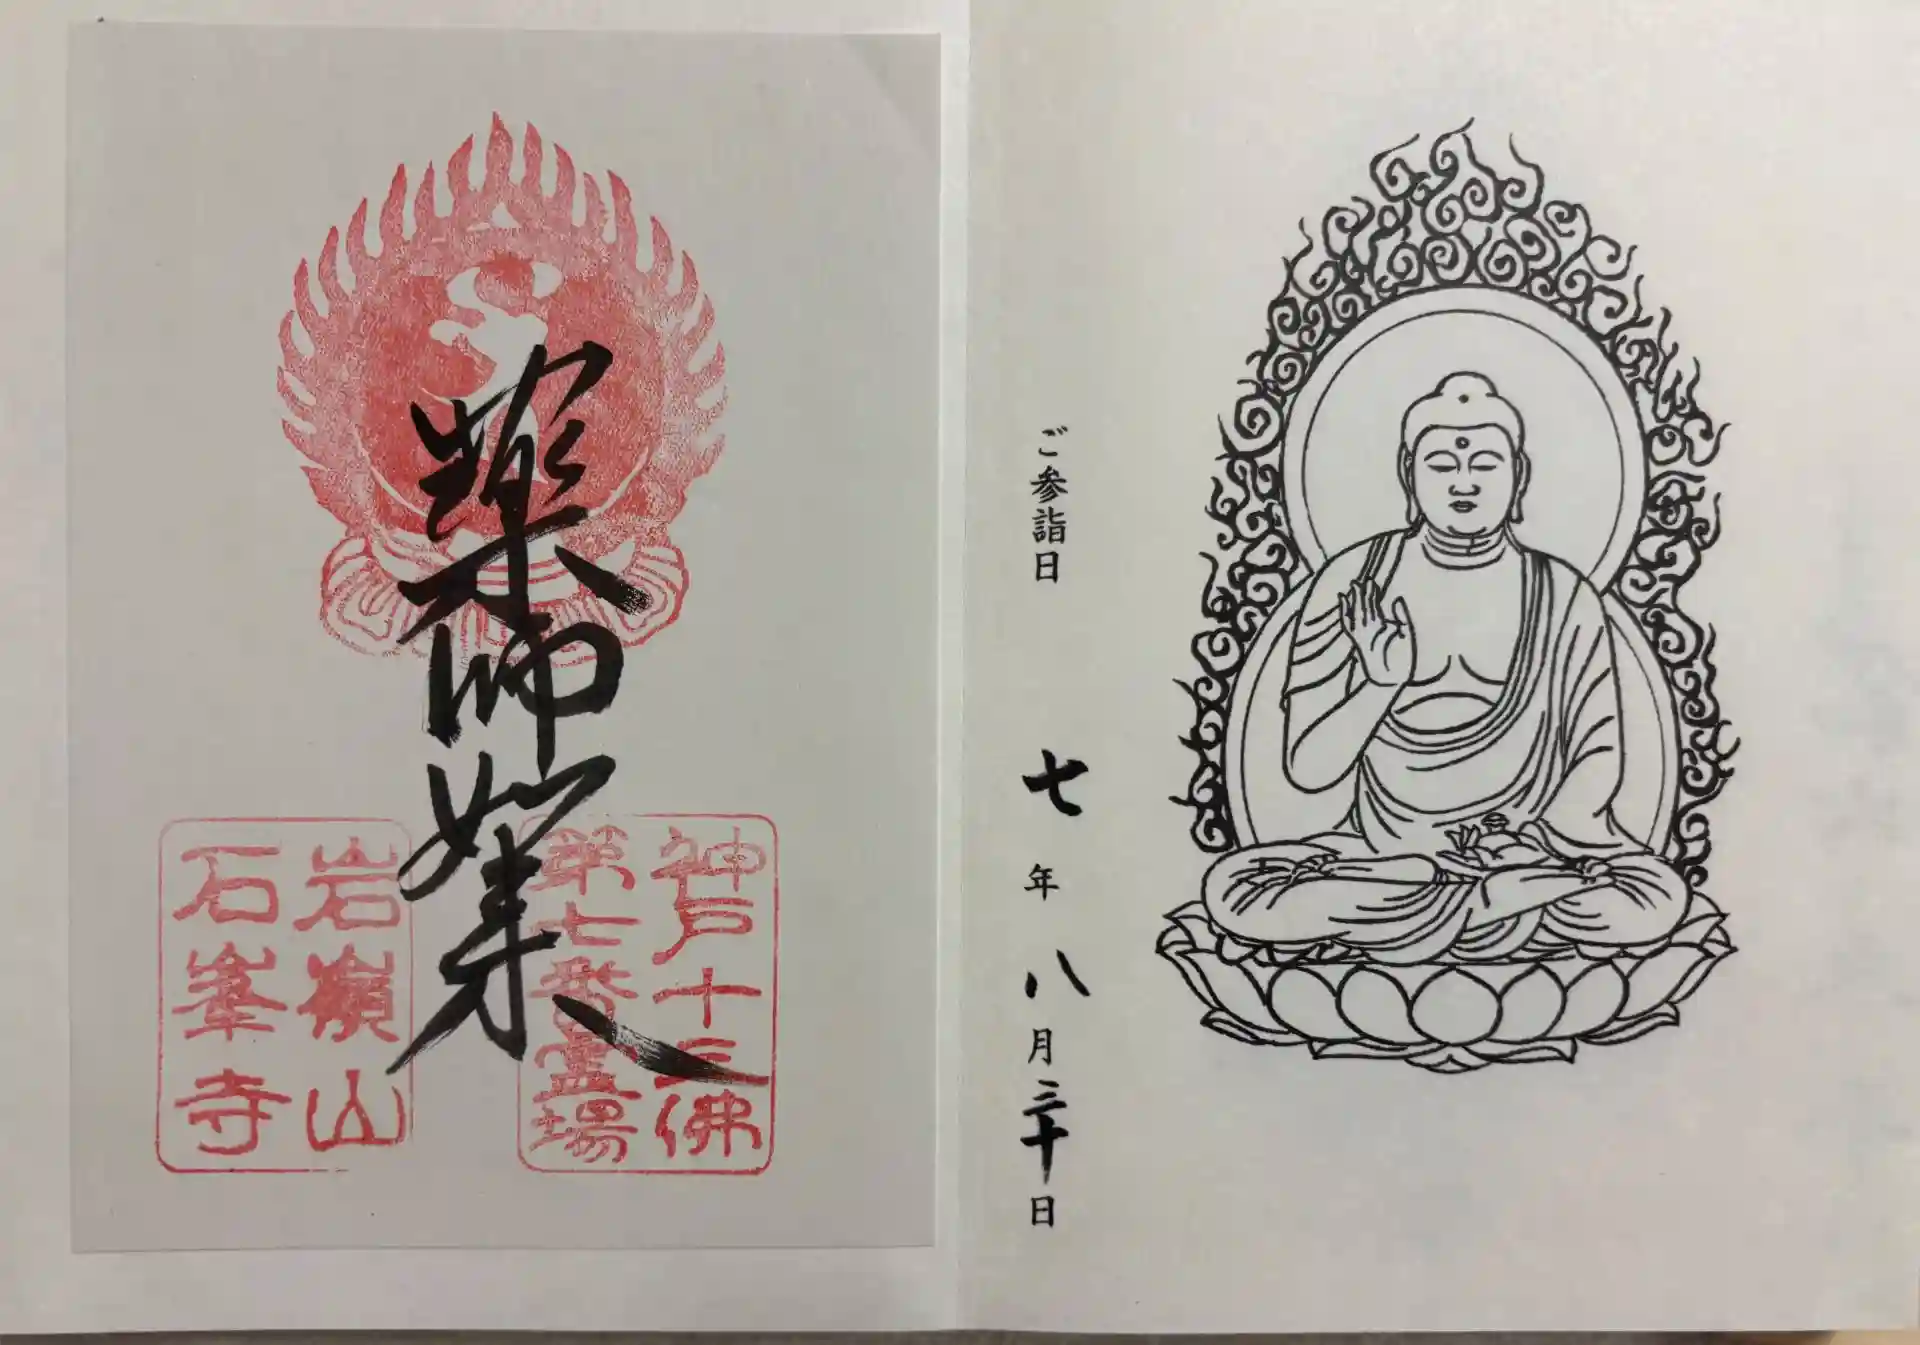 ご参詣日
七年八月三十日
薬師如来
神戸十三佛
第七番霊場
岩嶺山
石峯寺